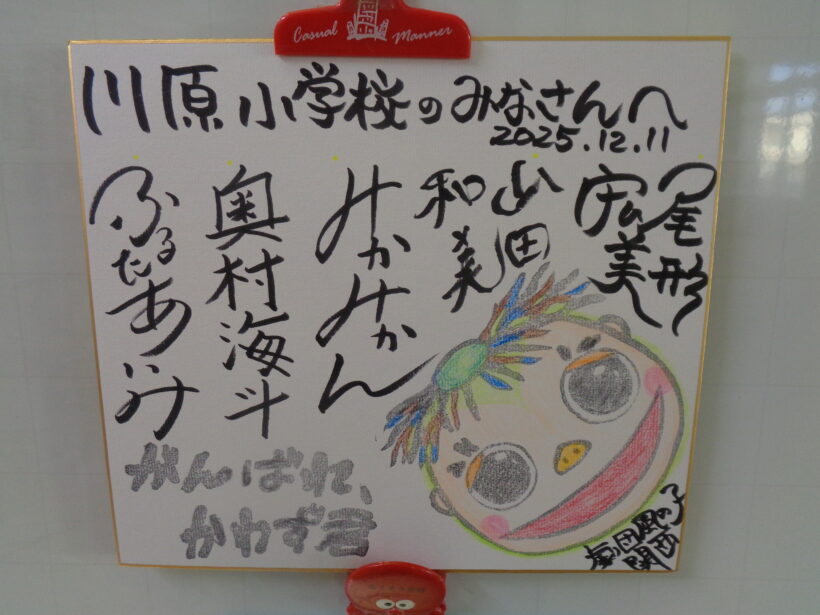 Casual Manner
川原小学校のみなさんへ
2025.12.11
尾形宏美
山田和美
みかみかん
奥村海斗
ふるたにあいみ
がんばれ、
かわず君
劇団風の子
関西